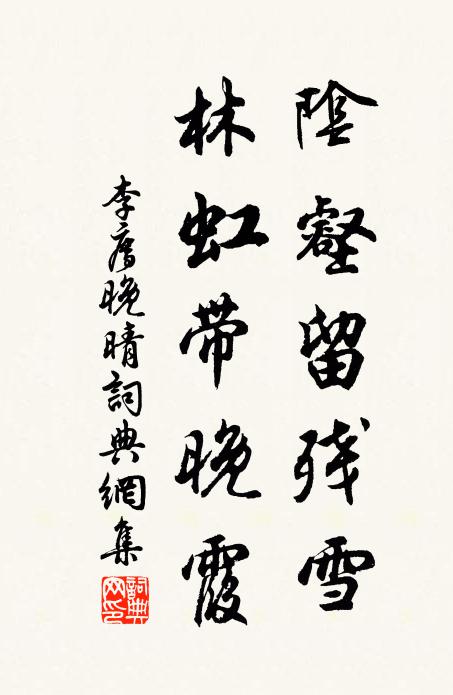 陰壑留残雪
林虹带晚霞
李晚晴詞典網集
詞典网印